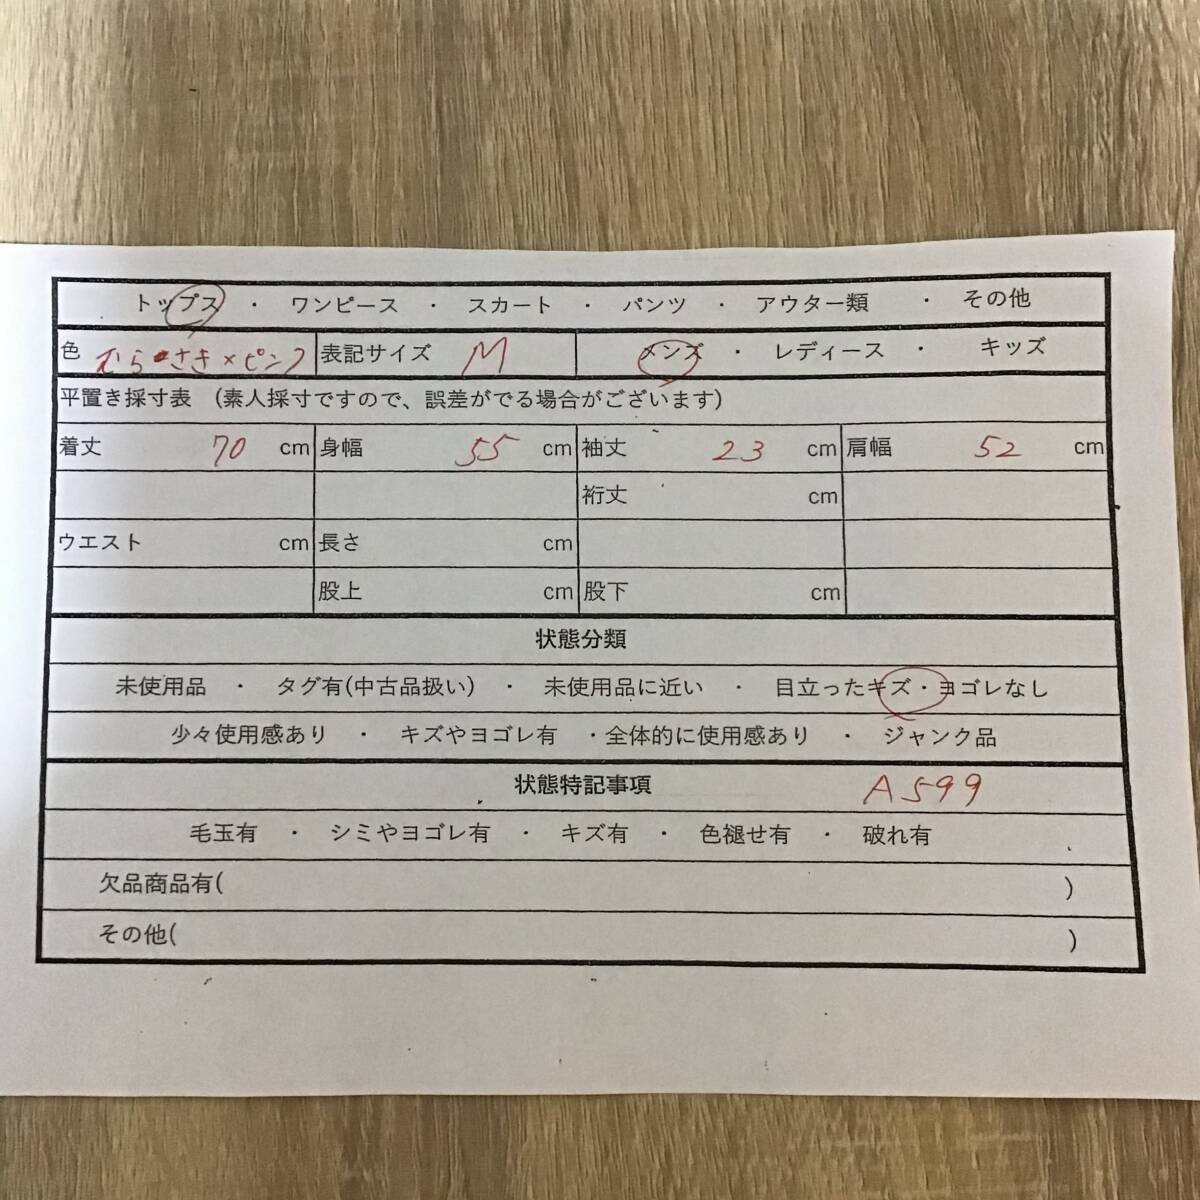 トップス ・ ワンピース ・ スカート ・ パンツ ・ アウター類 ・ その他
色 むらさき×ピンク 表記サイズ M メンズ ・ レディース ・ キッズ
平置き採寸表 (素人採寸ですので、誤差がでる場合がございます)
着丈 70 cm 身幅 55 cm 袖丈 23 cm 肩幅 52 cm
裄丈 cm
ウエスト cm 長さ cm
股上 cm 股下 cm
状態分類
未使用品 ・ タグ有(中古品扱い) ・ 未使用品に近い ・ 目立ったキズ・ヨゴレなし
少々使用感あり ・ キズやヨゴレ有 ・全体的に使用感あり ・ ジャンク品
状態特記事項 A599
毛玉有 ・ シミやヨゴレ有 ・ キズ有 ・ 色褪せ有 ・ 破れ有
欠品商品有( )
その他( )